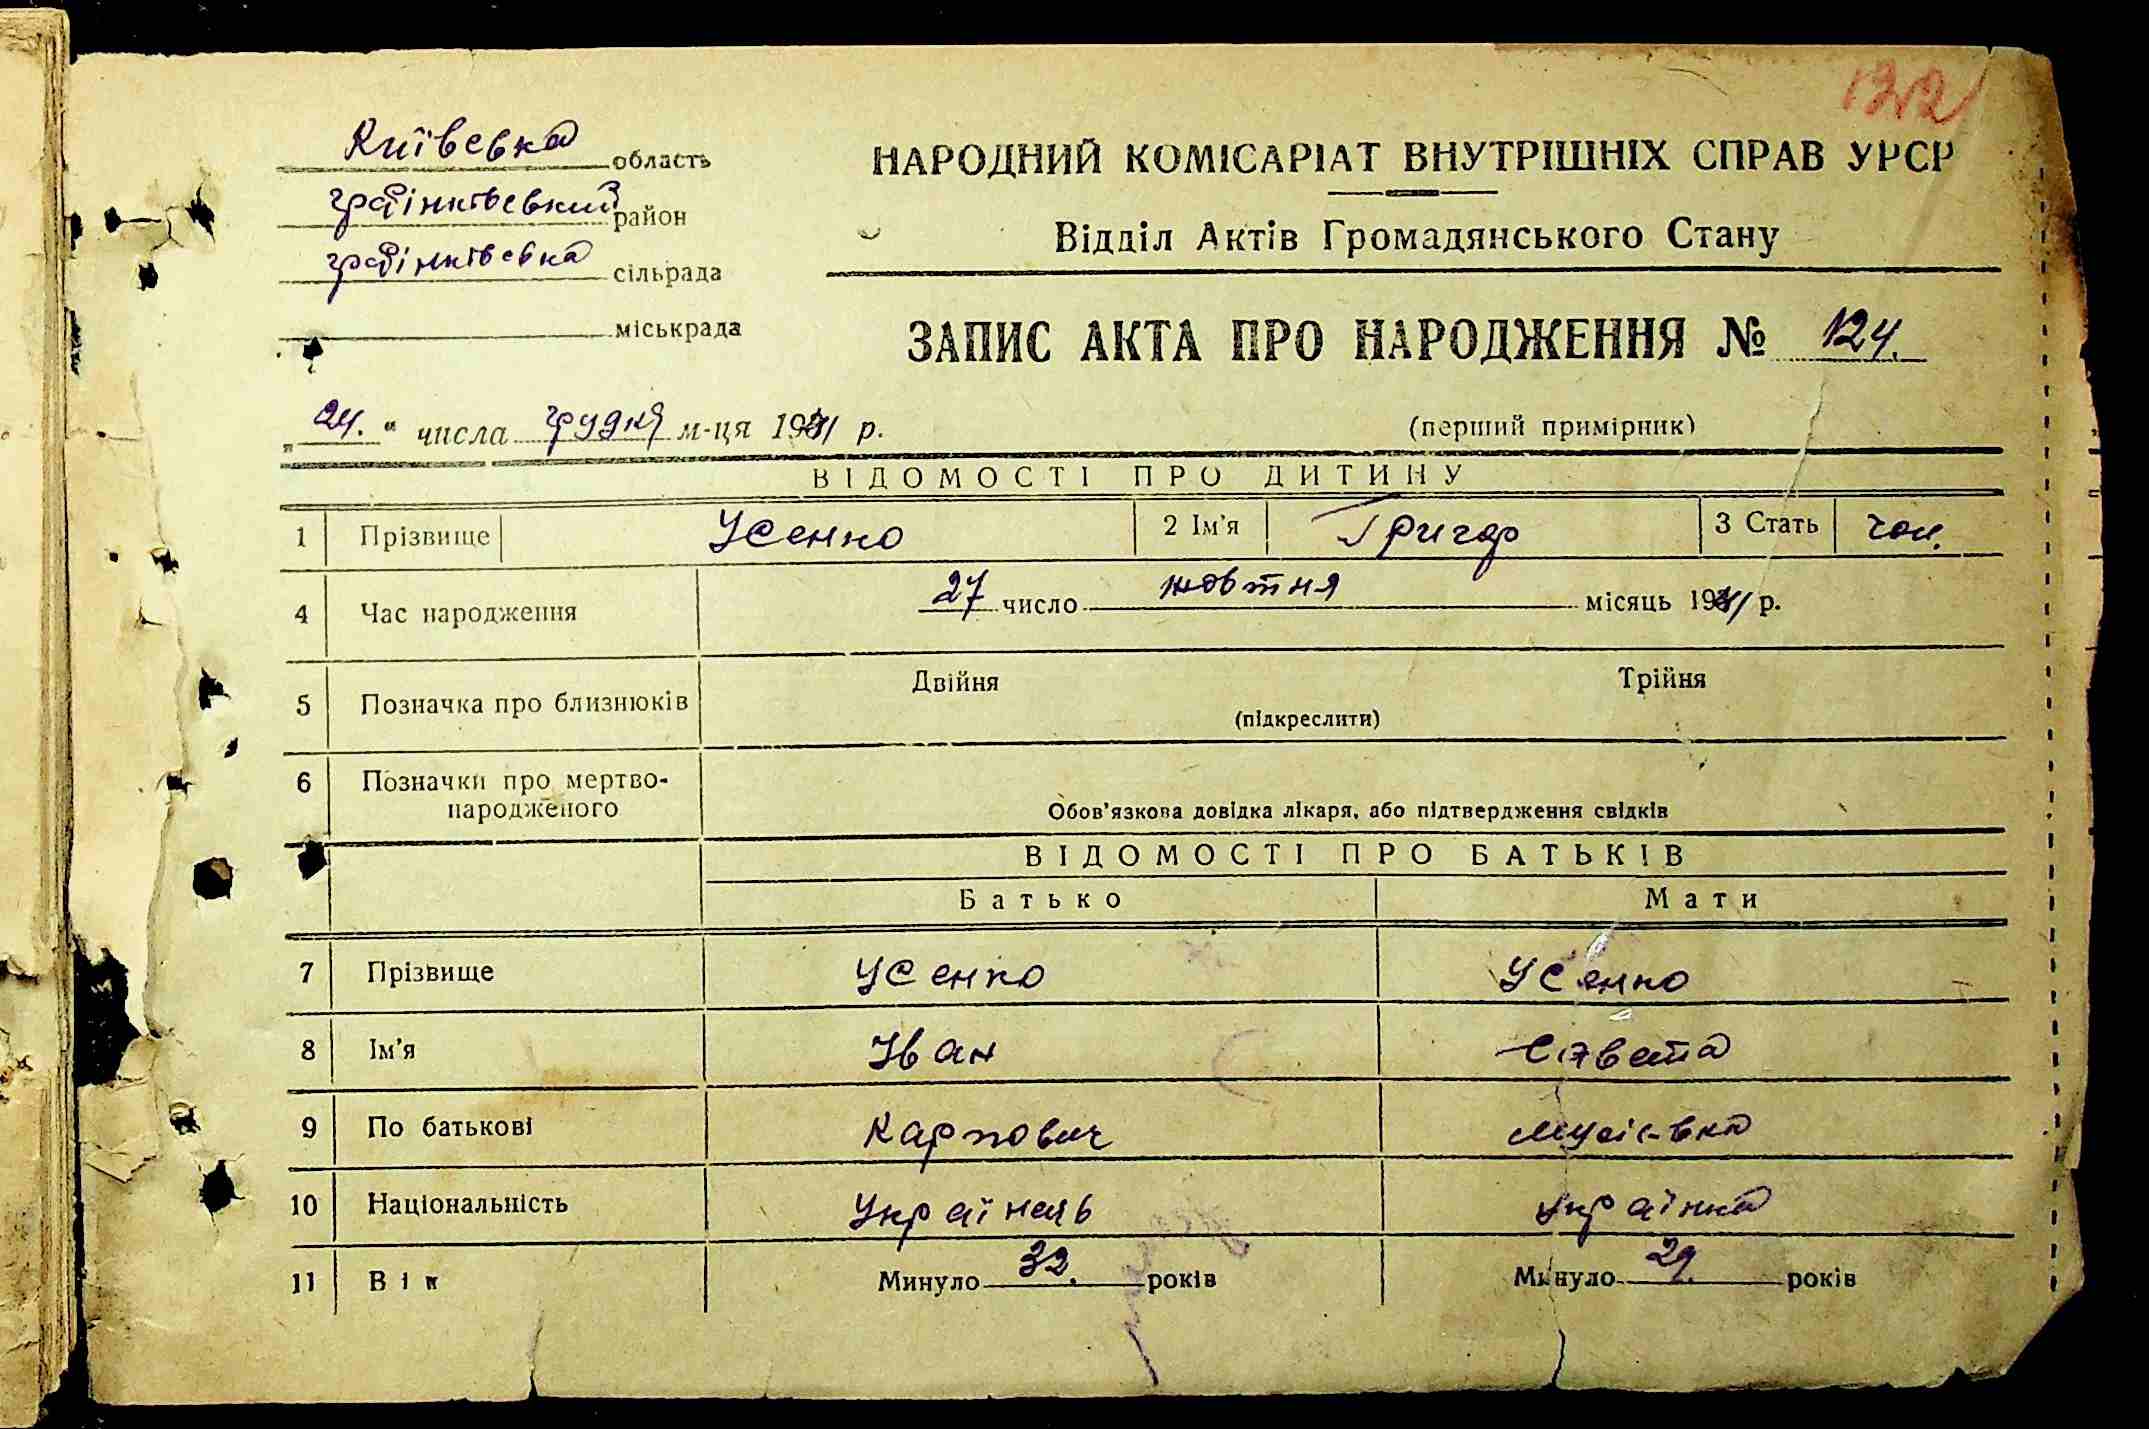 122
Київська область
НАРОДНИЙ КОМІСАРІАТ ВНУТРІШНІХ СПРАВ УРСР
район
Відділ Актів Громадянського Стану
сільрада
міськрада
ЗАПИС АКТА ПРО НАРОДЖЕННЯ № 124.
„24." числа грудня м-ця 1941 р.
(перший примірник)
ВІДОМОСТІ ПРО ДИТИНУ
1 Прізвище Усенко 2 Ім'я Григор 3 Стать чол.
4 Час народження 27 число жовтня місяць 1941 р.
5 Позначка про близнюків Двійня Трійня
(підкреслити)
6 Позначки про мертво-
народженого Обов'язкова довідка лікаря, або підтвердження свідків
ВІДОМОСТІ ПРО БАТЬКІВ
Батько Мати
7 Прізвище Усенко Усенко
8 Ім'я Іван
9 По батькові Карпович
10 Національність Українець Українка
11 Вік Минуло 32. років Минуло 29. років